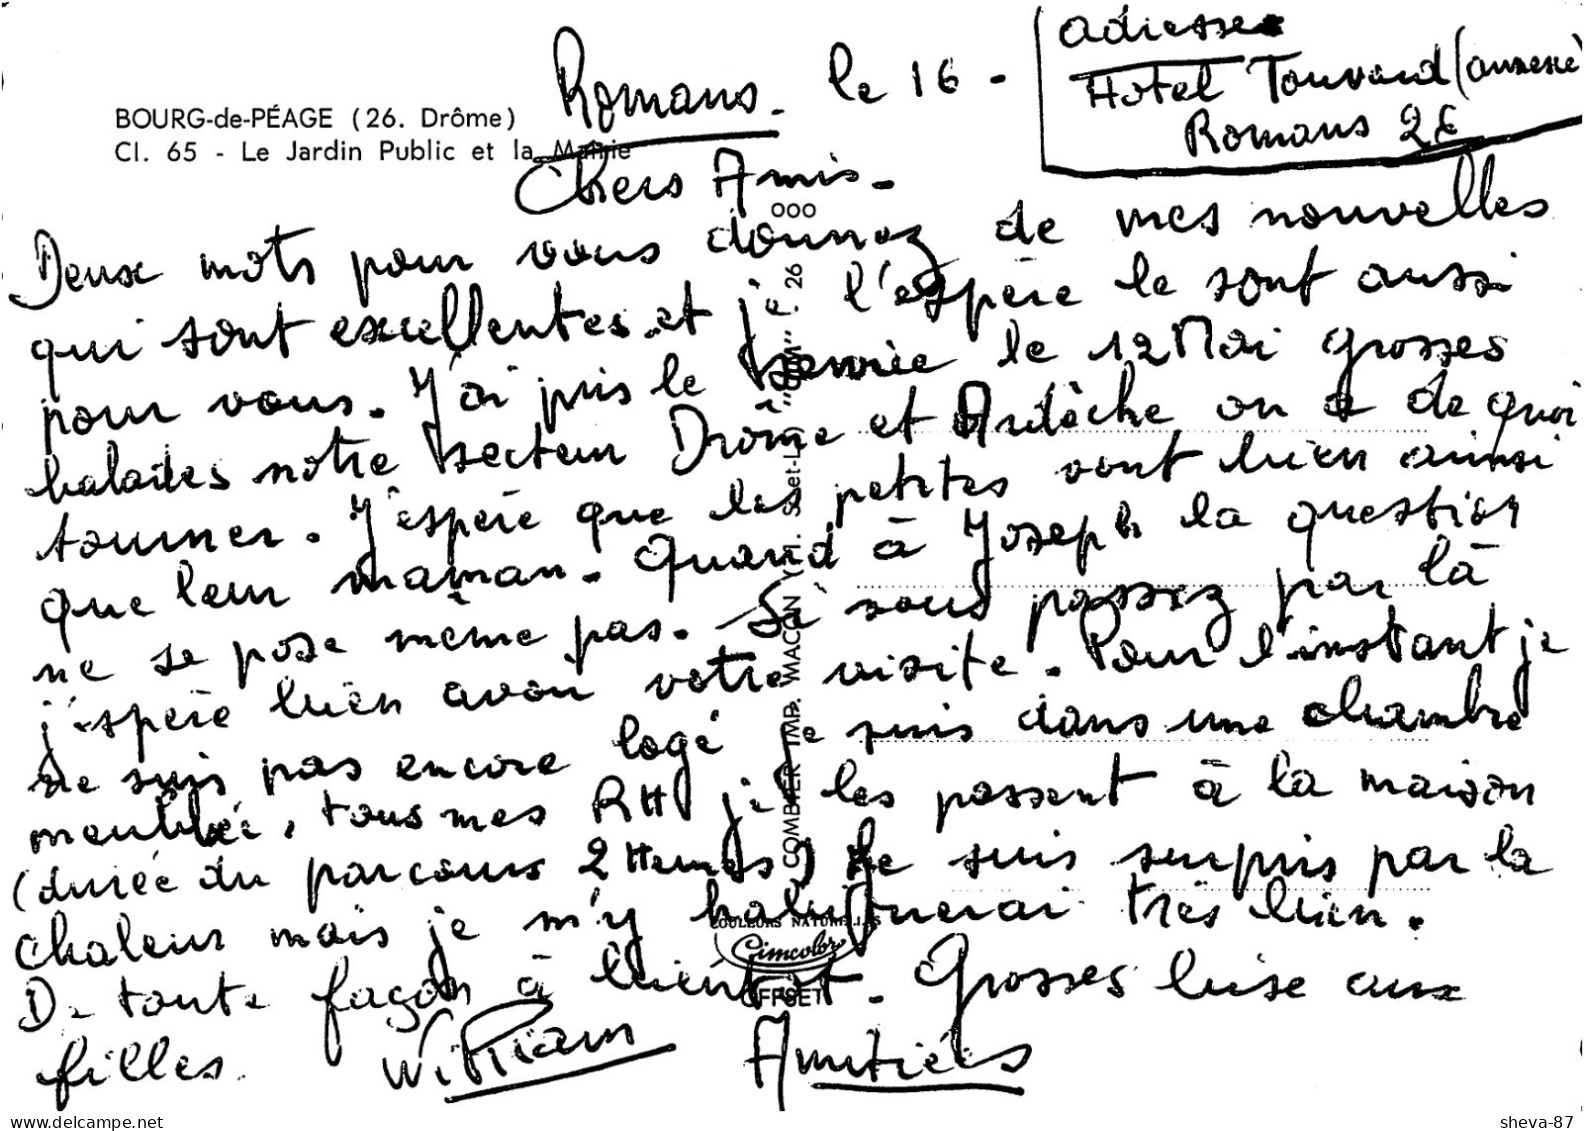 adresse
Hotel Touvard (annexe)
Romans 26
Romans. le 16 -
BOURG-de-PÉAGE (26. Drôme)
Cl. 65 - Le Jardin Public et la Mairie
Chers Amis -
Deux mots pour vous donnez de mes nouvelles
qui sont excellentes et j' l'espère le sont aussi
pour vous. J'ai pris le service le 12 Mai grosses
balades notre secteur Drôme et Ardèche on a de quoi
tourner. J'espère que les petites vont bien ainsi
que leur maman. Quand à Joseph la question
ne se pose même pas. Si vous passez par là
j'espère bien avoir votre visite. Pour l'instant je
ne suis pas encore logé je suis dans une chambre
meublée, tous mes RH je les passent à la maison
(durée du parcours 2 Heures) Je suis surpris par la
chaleur mais je m'y habituerai très bien.
De toute façon à bientôt. Grosses bise aux
filles. William Amitiés
COMBIER IMP. MACON
"CIM"
COULEURS NATURELLES
Cimcolor
OFFSET
www.delcampe.net
sheva-87